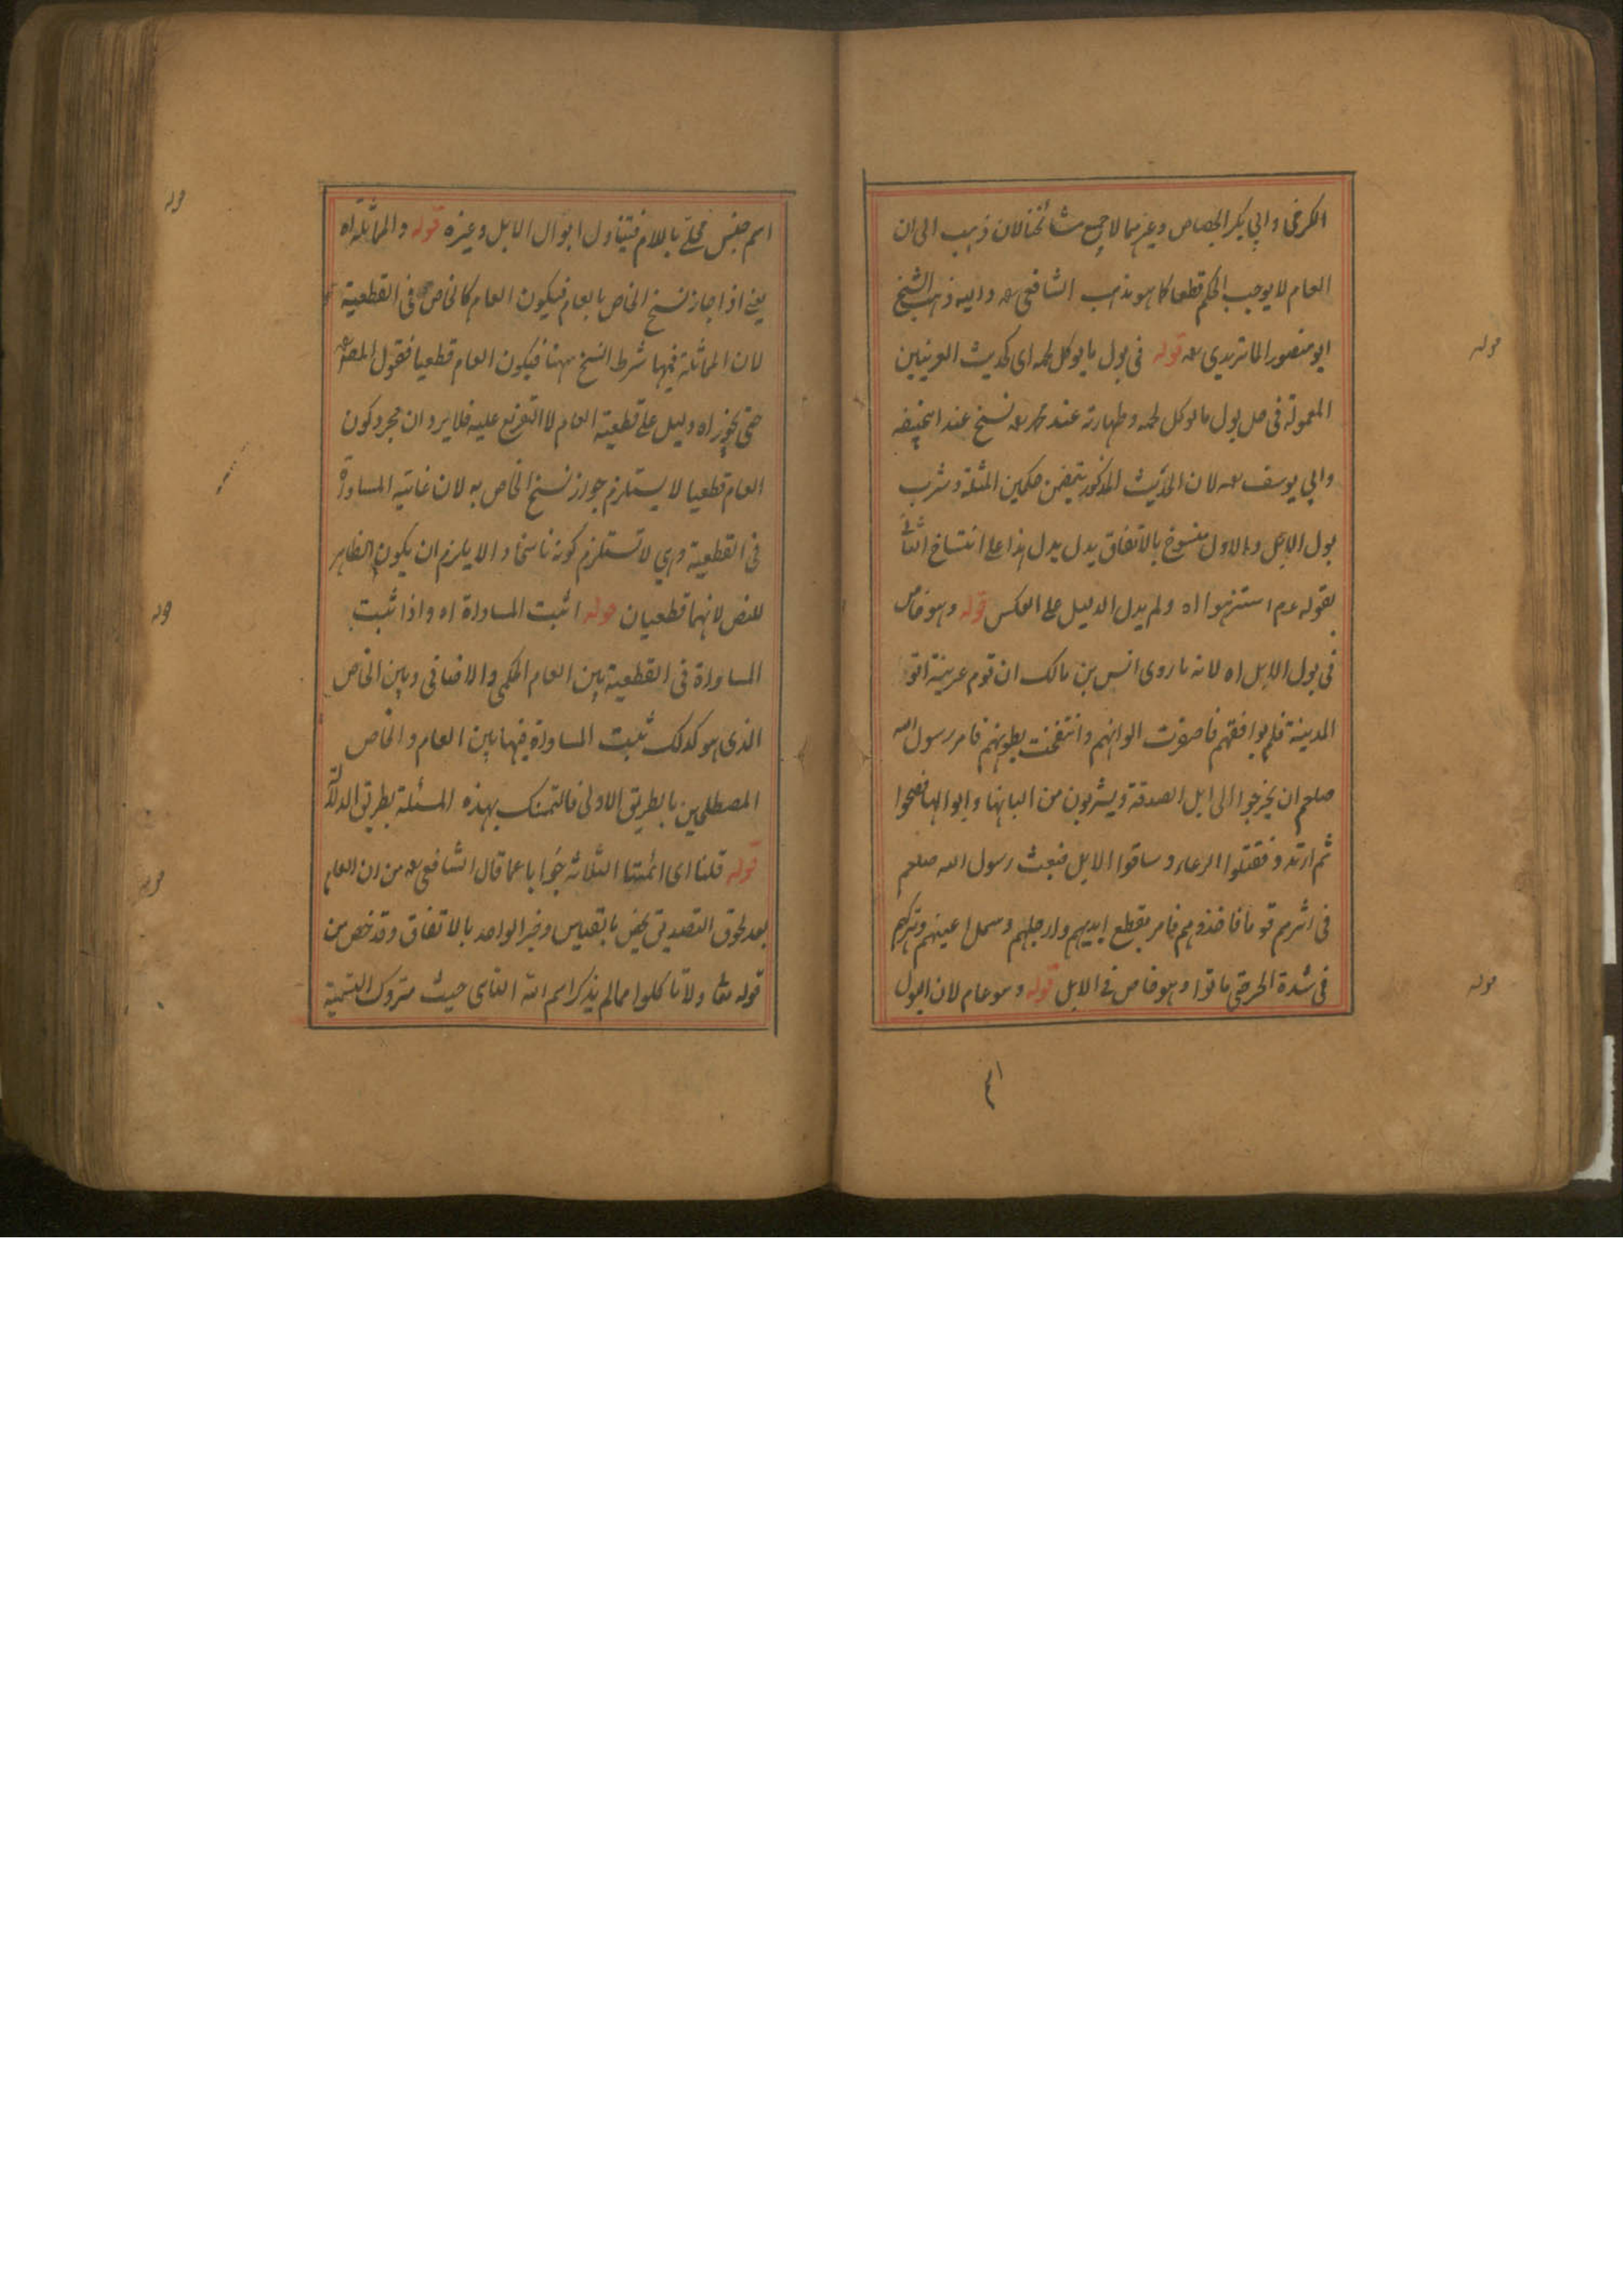 الكرخى وابي بكر الجصاص وغيرهما لا جميع مشائخنا لان ذهب الى ان
العام لا يوجب الحكم قطعا كما هو مذهب الشافعى رحمه واليه ذهب الشيخ
ابو منصور الماتريدى رحمه قوله فى بول ما يوكل لحمه اى كحديث العرنيين
المعمولة فى حل بول ما يوكل لحمه وطهارته عند محمد رحمه نسخ عند ابيحنيفه
وابي يوسف رحمه لان الحديث المذكور يتضمن حكمين المثلة وشرب
بول الابل والاول منسوخ بالاتفاق يدل يدل هذا على انتساخ الثانى
بقوله عم استنزهوا اه ولم يدل الدليل على العكس قوله وهو خاص
فى بول الابل اه لانه ما روى انس بن مالك ان قوم عرينة اتوا
المدينة فلم يوافقهم فاصفرت الوانهم وانتفخت بطونهم فامر رسول الله
صلعم ان يخرجوا الى ابل الصدقة ويشربون من البانها وابوالها فصحوا
ثم ارتدو فقتلوا الرعاء وساقوا الابل فبعث رسول الله صلعم
فى اثرهم قوما فاخذوهم فامر بقطع ايديهم وارجلهم وسمل اعينهم وتركهم
فى شدة الحر حتى ماتوا وهو خاص فى الابل قوله وهو عام لان البول
قوله
قوله
اسم جنس محلى باللام فيتناول ابوال الابل وغيره قوله والمماثلة اه
يعنى اذا جاز نسخ الخاص بالعام فيكون العام كالخاص فى القطعية
لان المماثلة فيها شرط النسخ ههنا فيكون العام قطعيا فقول المصنف
حتى يجوز اه دليل على قطعية العام لا التفريع عليه فلا يرد ان مجرد كون
العام قطعيا لا يستلزم جواز نسخ الخاص به لان غايته المساواة
فى القطعية وهي لا تستلزم كونه ناسخا والا يلزم ان يكون الظاهر
للنص لانهما قطعيان قوله اثبت المساواة اه واذا ثبت
المساواة فى القطعية بين العام الحكمى والاضافى وبين الخاص
الذى هو كذلك ثبت المساواة فيها بين العام والخاص
المصطلحين بالطريق الاولى فالتمسك بهذه المسئلة بطريق الدلالة
قوله قلنا اى ائمتنا الثلاثه جوابا عما قال الشافعى رحمه من ان العام
بعد لحوق التصديق يخص بالقياس وخبر الواحد بالاتفاق وقد خص من
قوله تعا ولا تاكلوا مما لم يذكر اسم الله الناسى حيث متروك التسمية
قوله
قوله
قوله